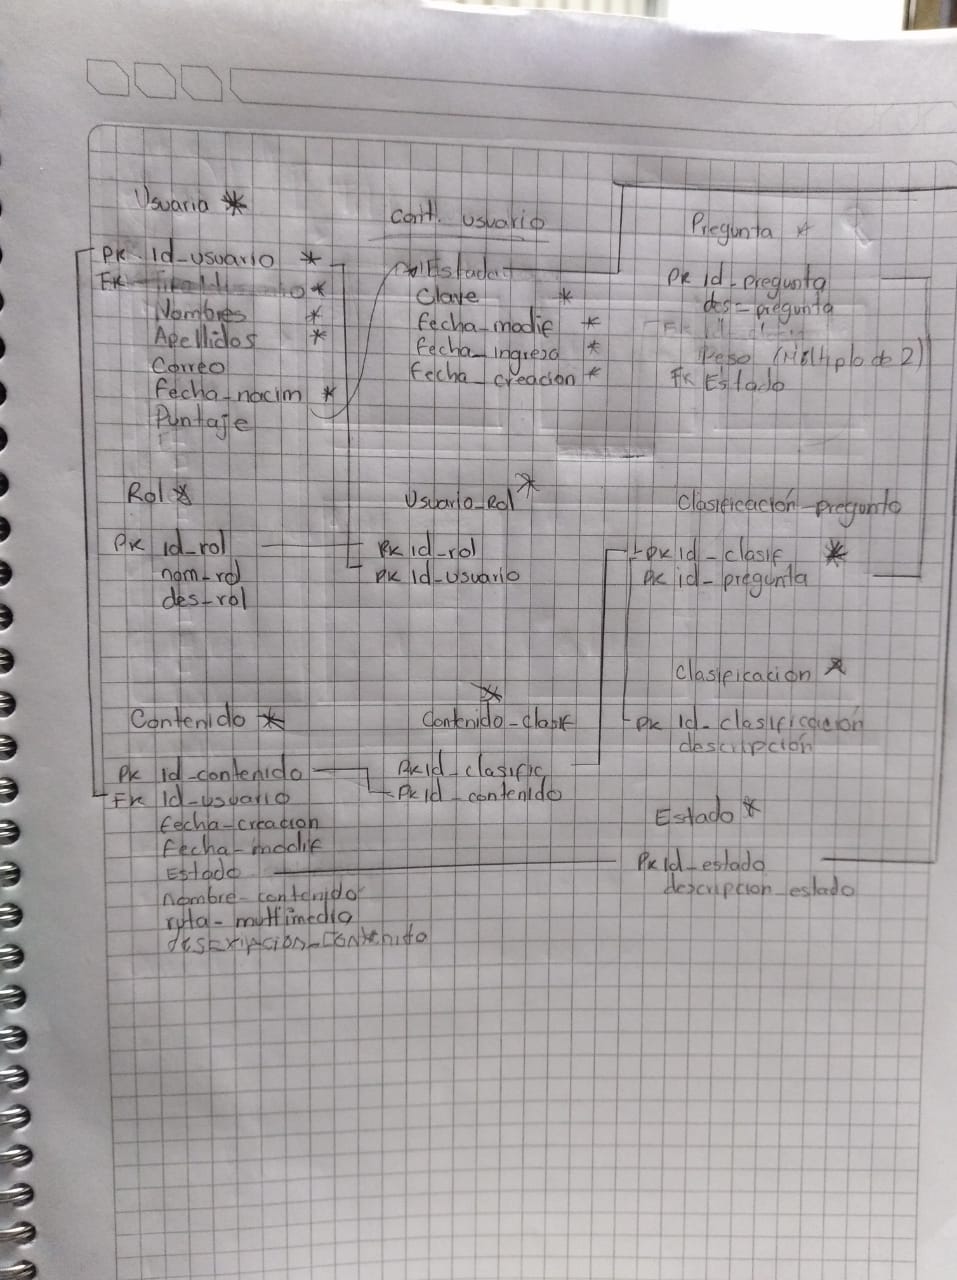 Usuario *
PK Id_usuario *
FK *
Nombres *
Apellidos *
Correo
fecha_nacim *
Puntaje
cont. usuario
Estado
Clave *
fecha_modif *
fecha_ingreso *
fecha_creacion *
Pregunta *
PK id_pregunta
des_pregunta
FK
Peso (Múltiplo de 2)
FK Estado
Rol *
PK id_rol
nom_rol
des_rol
Usuario_Rol *
PK id_rol
PK Id_usuario
Clasificación_pregunta
PK id_clasif *
PK id_pregunta
Clasificacion *
PK Id_clasificación
descripción
Contenido *
PK Id_contenido
FK Id_usuario
fecha_creacion
fecha_modif
Estado
nombre_contenido
ruta_multimedia
descripcion_contenido
*
Contenido_clasif
PK Id_clasific
PK Id_contenido
Estado *
PK Id_estado
descripcion_estado